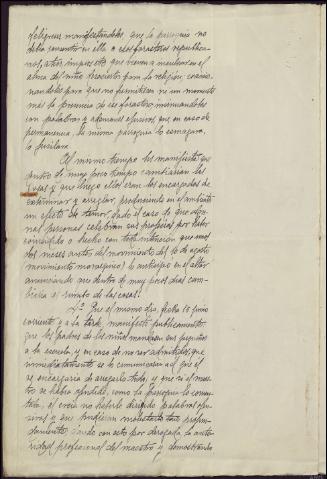 religiosa manifestándoles, que la parroquia no
debía consentir en ella a esos forasteros republica-
nos, ateos, impíos etc que vienen a sembrar en el
alma del niño desacierto para la religión, coaccio-
nandoles para que no permitiesen ni un momento
más la presencia de ese forastero, insinuandoles
con palabras y ademanes efusivos que en caso de
permanencia, la misma parroquia lo
lo fusilara.
Al mismo tiempo les manifiesta que
dentro de muy poco tiempo cambiarían las
cosas y que luego ellos eran los encargados de
exterminar y arreglar, produciendo en el ambiente
un efecto de terror, dado el caso de que algu-
nas personas celebran sus profecías por haber
conseguido o hecho con toda intención que unos
dos meses antes del movimiento del 10 de agosto
(movimiento monárquico) lo anticipo en el altar
anunciando que dentro de muy pocos días cam-
biaría el rumbo de las cosas.
4º Que el mismo día, fecha 15 junio
corriente y a la tarde, manifestó publicamente
que los padres de los niños mandasen sus pequeños
a la escuela, y en caso de no ser admitidos, que
inmediatamente se lo comunicaran a él que él
se encargaría de arreglarlo todo, y que si el maes-
tro se había ofendido, como la Parroquia lo comen-
taba, el creía no haberle dirigido palabras ofen-
sivas y sus
damiento, dando con esto por derogada la auto-
ridad profesional del maestro y demostrando